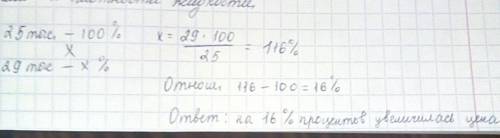 жидкости.
25 тыс. – 100 %
x
29 тыс – x %
x = 29 · 100 / 25 = 116%
Отнош. 116 – 100 = 16%
Ответ: на 16 % процентов увеличилась цена